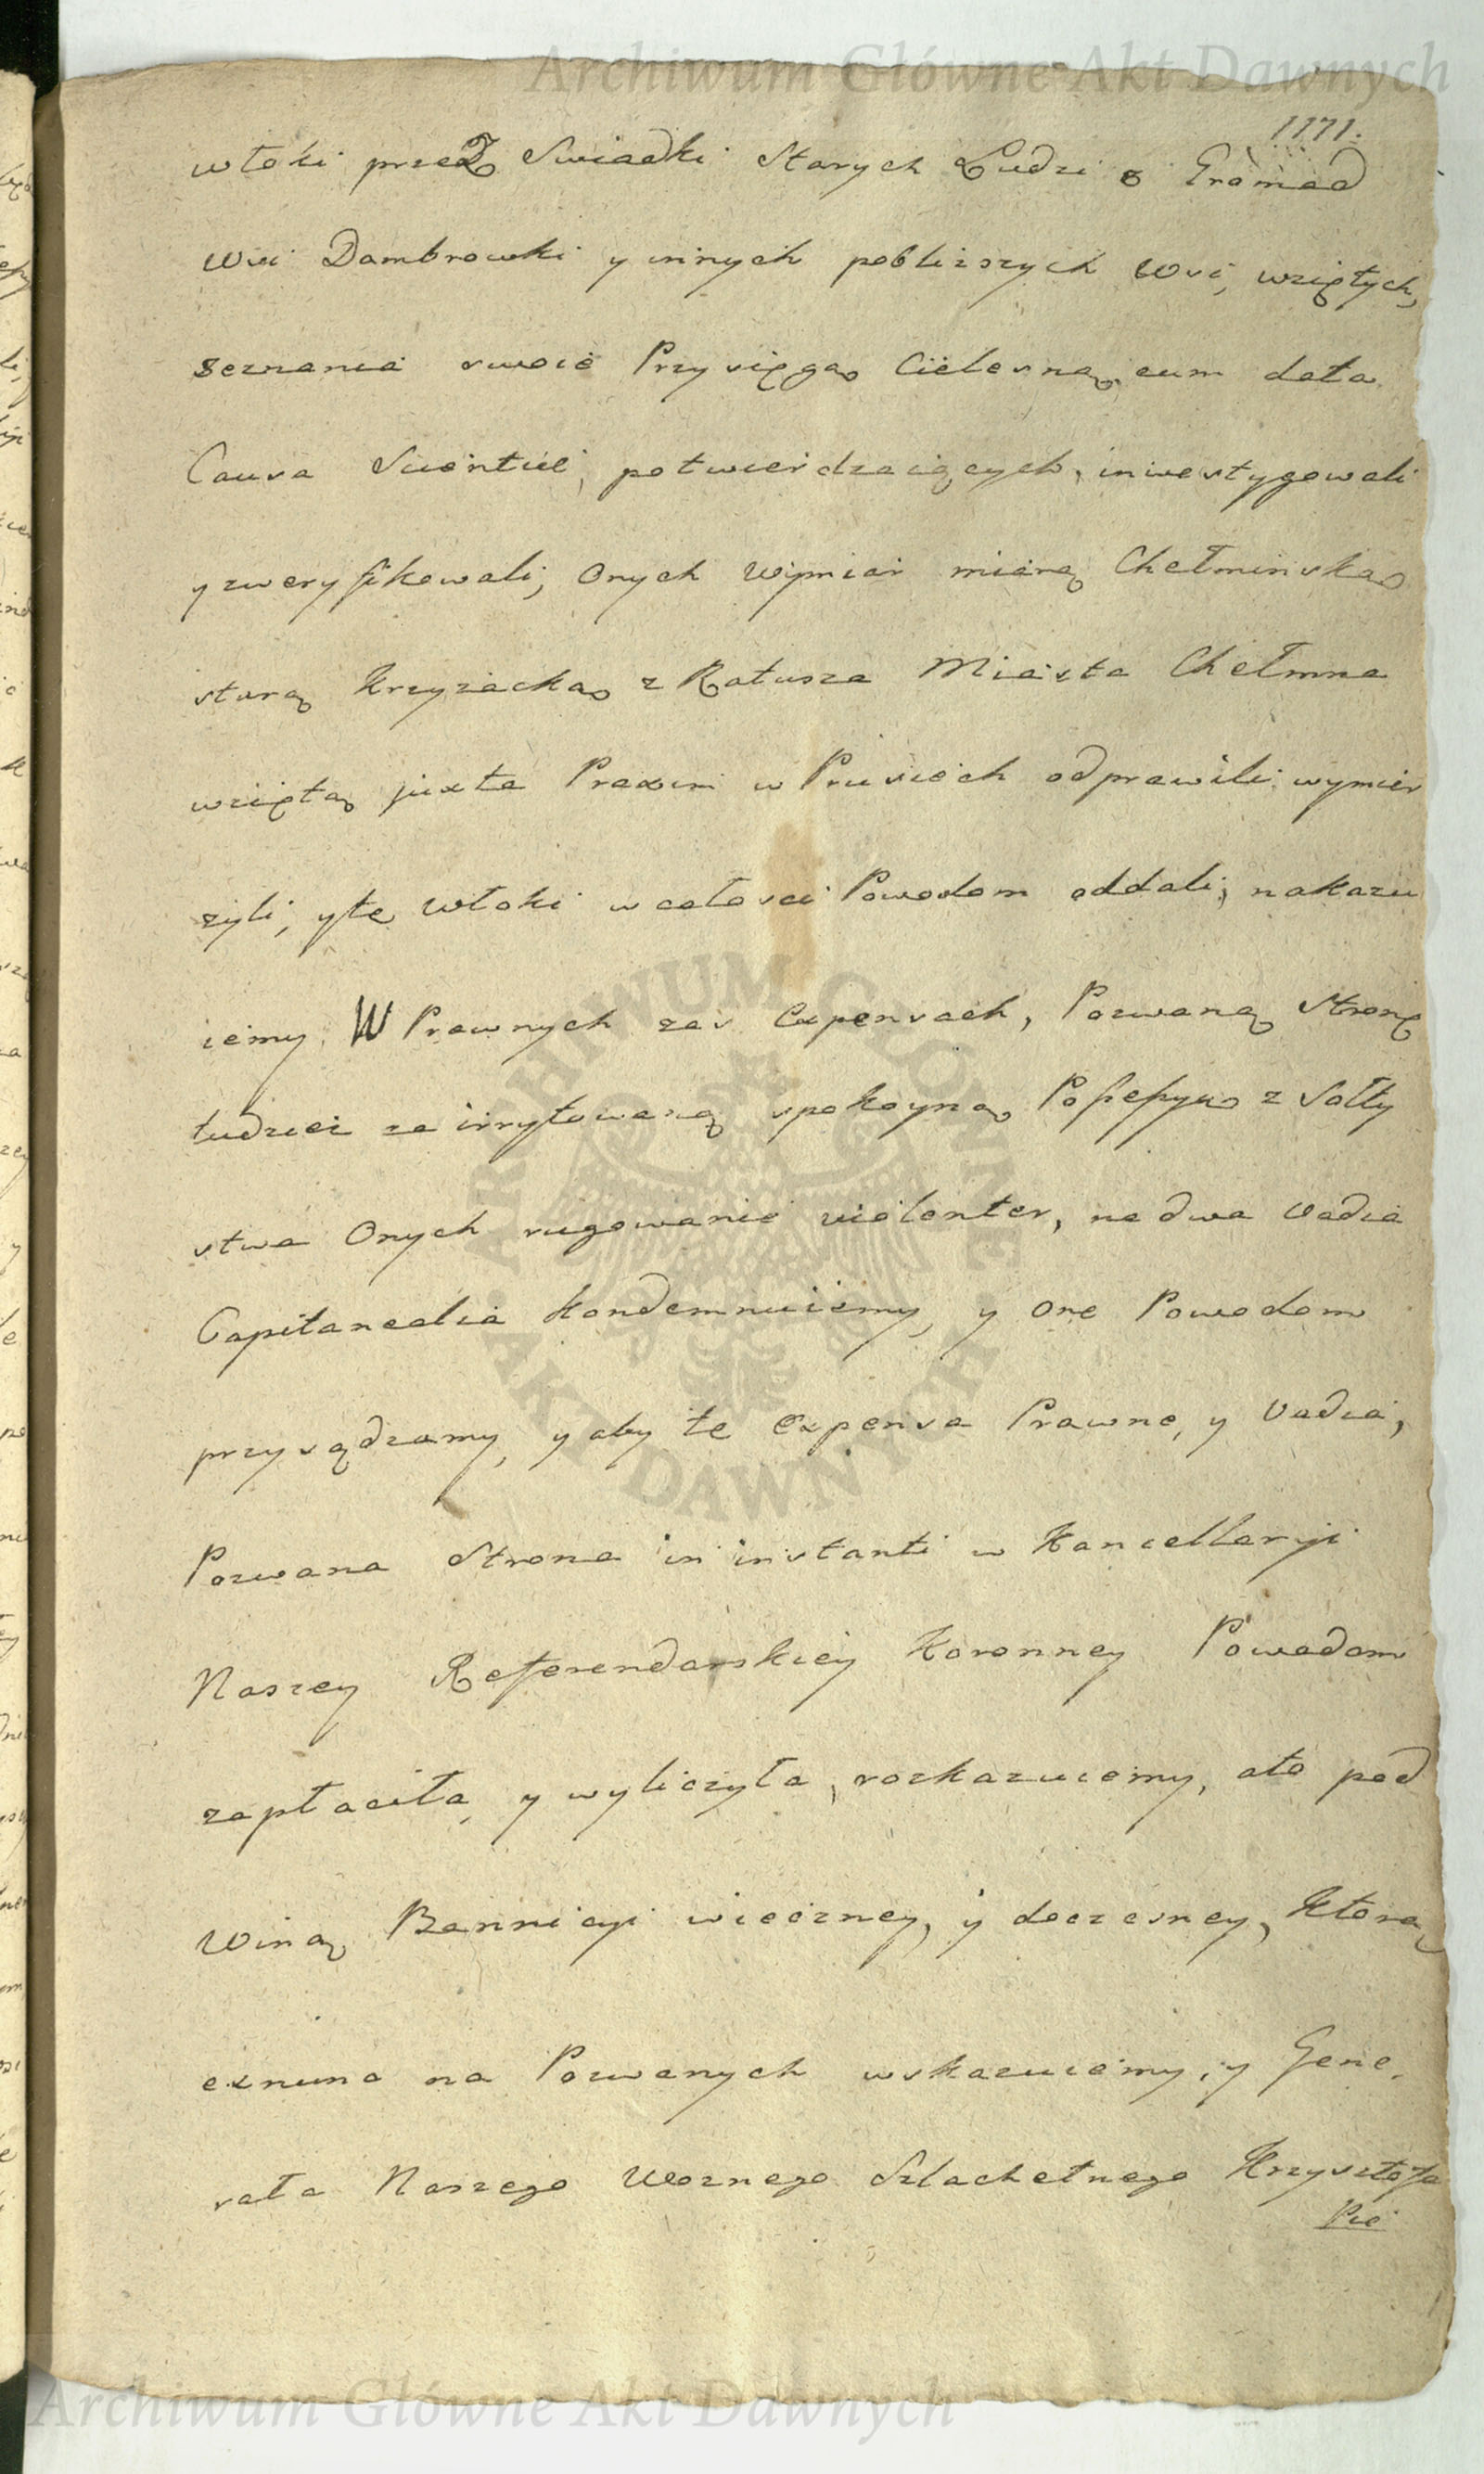 Archiwum Główne Akt Dawnych
1171.
włoki przez Swiadki Starych Ludzi z Gromad
Wsi Dambrowki y innych pobliszych Wsi, wziętych,
Zeznania swoie Przysięgą Cielesną cum data
Causa Scientiæ, potwierdzaiących, inwestygowali
y zweryfikowali, Onych Wymiar miarą Chełminską
starą Krzyzacką z Ratusza Miasta Chełmna
wziętą juxta Praxim w Prusiech odprawili, wymier
zyli, y te Włoki w całosci Powodom oddali, nakazu
iemy. W Prawnych zas Expensach, Pozwaną Stronę
tudziez za irrytowaną spokoyną Possessyą z Sołty
stwa Onych rugowanie violenter, na dwa Vadia
Capitanealia kondemnuiemy, y one Powodom
przysądzamy, y aby te Expensa Prawne, y Vadia,
Pozwana Strona in instanti w Kancellaryi
Naszey Referendarskiey Koronney Powodom
zapłaciła, y wyliczyła, rozkazuiemy, a to pod
Winą Bannicyi wieczney, y doczesney, którą
exnunc na Pozwanych wskazuiemy, y Gene,
rała Naszego Woznego Szlachetnego Krzysztofa
Pie
ARCHIWUM GŁÓWNE AKT DAWNYCH
Archiwum Główne Akt Dawnych